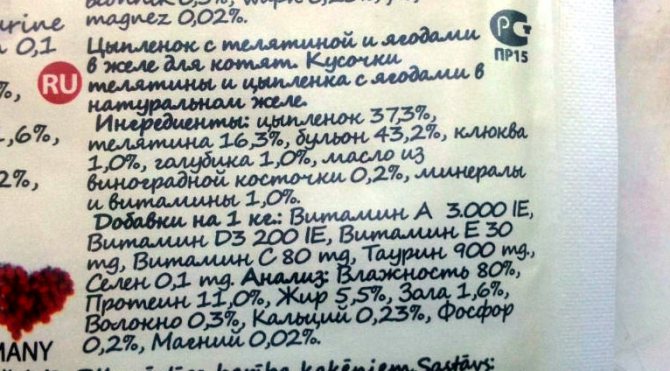 magnez 0,02%.
urine
n 0,1
%,
1,6%,
2%,
MANY
RU
Цыпленок с телятиной и ягодами
в желе для котят. Кусочки
телятины и цыпленка с ягодами в
натуральном желе.
Ингредиенты: цыпленок 37,3%,
телятина 16,3%, бульон 43,2%, клюква
1,0%, голубика 1,0%, масло из
виноградной косточки 0,2%, минералы
и витамины 1,0%.
Добавки на 1 кг.: Витамин А 3.000 IE,
Витамин D3 200 IE, Витамин E 30
mg, Витамин C 80 mg, Таурин 900 mg.,
Селен 0,1 mg. Анализ: Влажность 80%,
Протеин 11,0%, Жир 5,5%, Зола 1,6%,
Волокно 0,3%, Кальций 0,23%, Фосфор
0,2%, Магний 0,02%.
kaķēniem. Sastāvs:
РСТ
ПР15